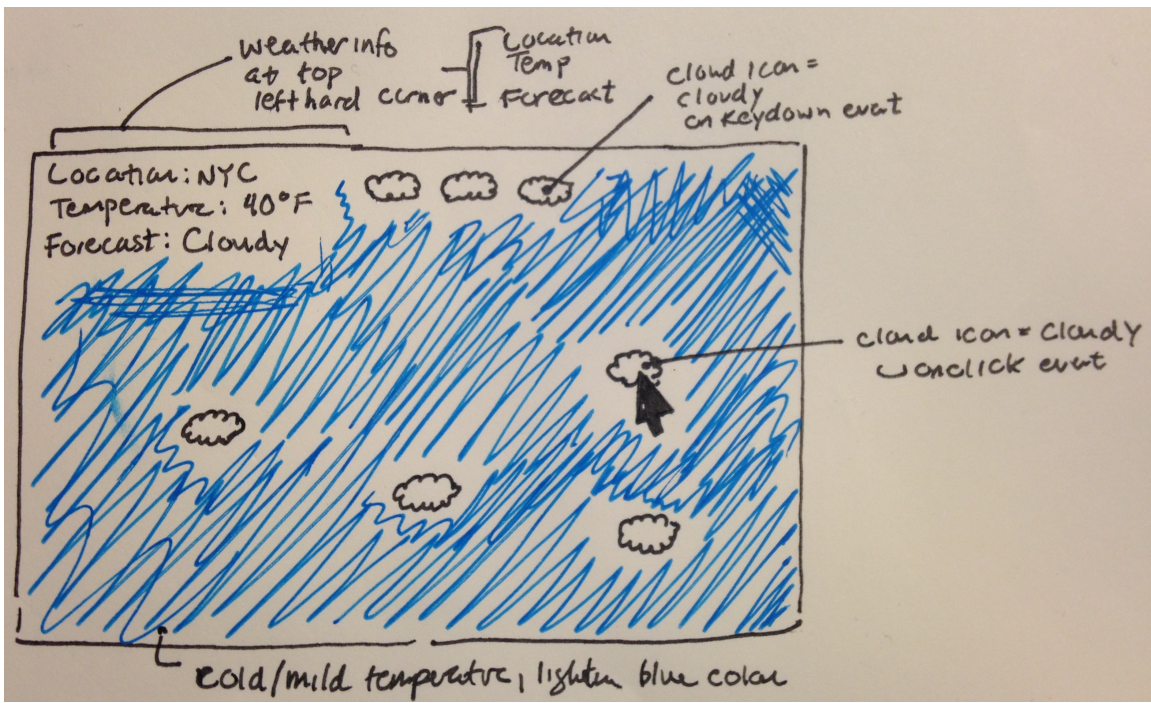 weather info
at top
left hard corner
Location
Temp
Forecast
cloud icon =
cloudy
on Keydown event
Location: NYC
Temperature: 40°F
Forecast: Cloudy
cloud icon = cloudy
onclick event
cold/mild temperature, lighter blue color